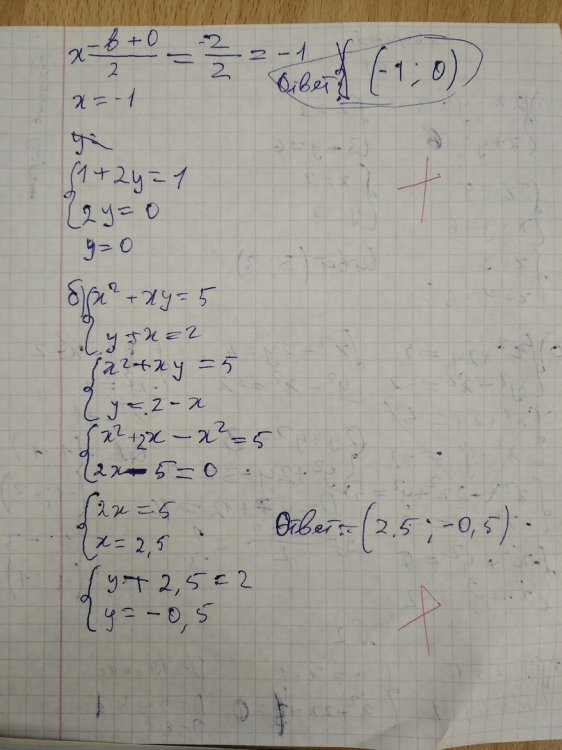 x -b+0/2 = -2/2 = -1
Ответ: (-1; 0)
x = -1
{1 + 2y = 1
{2y = 0
y = 0
б) {x² + xy = 5
{y + x = 2
{x² + xy = 5
{y = 2 - x
{x² + 2x - x² = 5
{2x - 5 = 0
{2x = 5
{x = 2,5
Ответ: (2,5 ; -0,5)
{y + 2,5 = 2
{y = -0,5